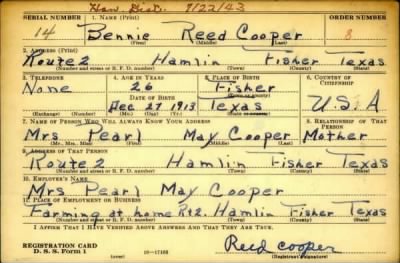 Haw. Dist. 9/22/43
SERIAL NUMBER 1. NAME (Print) ORDER NUMBER
14 Bennie Reed Cooper 8
(First) (Middle) (Last)
2. ADDRESS (Print)
Route 2 Hamlin Fisher Texas
(Number and street or R. F. D. number) (Town) (County) (State)
3. TELEPHONE 4. AGE IN YEARS 5. PLACE OF BIRTH 6. COUNTRY OF CITIZENSHIP
None 26 Fisher
DATE OF BIRTH (Town or county)
Dec 27 1913 Texas U.S.A
(Mo.) (Day) (Yr.) (State or country)
7. NAME OF PERSON WHO WILL ALWAYS KNOW YOUR ADDRESS 8. RELATIONSHIP OF THAT PERSON
Mrs Pearl May Cooper Mother
(Mr., Mrs., Miss) (First) (Middle) (Last)
9. ADDRESS OF THAT PERSON
Route 2 Hamlin Fisher Texas
(Number and street or R. F. D. number) (Town) (County) (State)
10. EMPLOYER'S NAME
Mrs Pearl May Cooper
11. PLACE OF EMPLOYMENT OR BUSINESS
Farming at home Rt2. Hamlin Fisher Texas
(Number and street or R. F. D. number) (Town) (County) (State)
I AFFIRM THAT I HAVE VERIFIED ABOVE ANSWERS AND THAT THEY ARE TRUE.
REGISTRATION CARD
D. S. S. Form 1 (over) Reed cooper
(Registrant's signature)